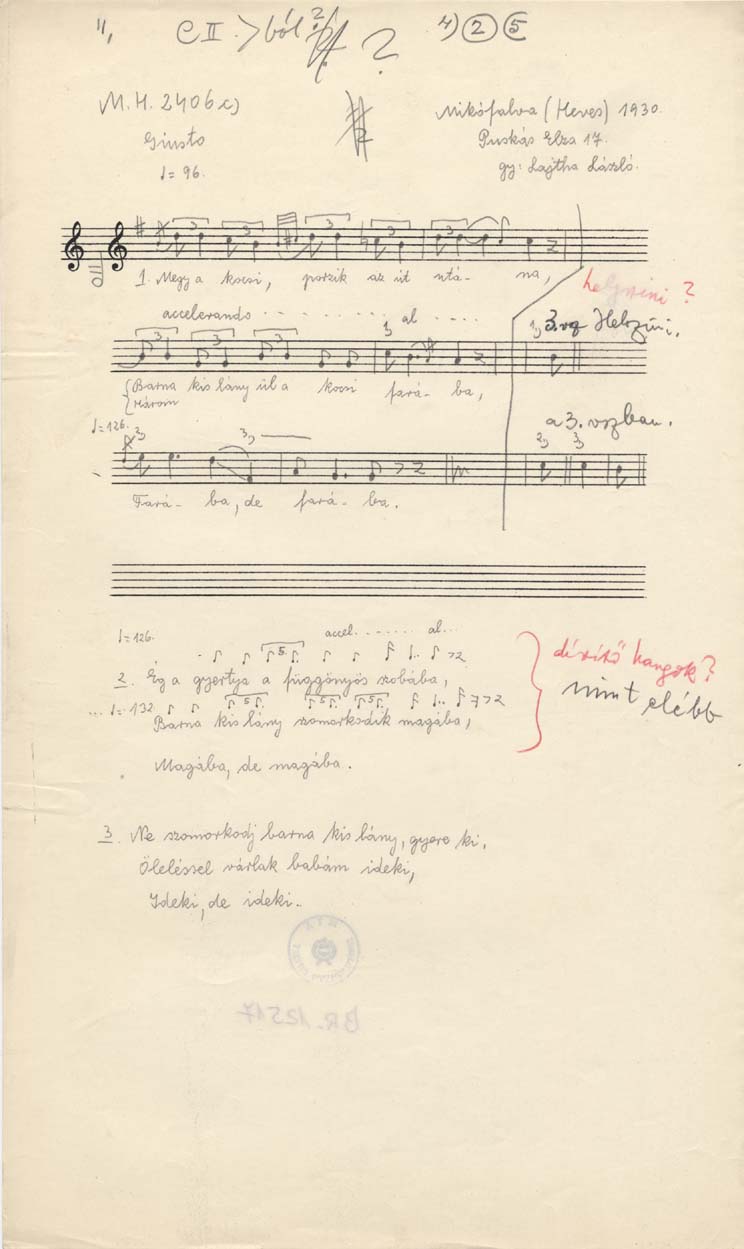 CII >ból ?
4) 2 5
M.H. 2406c)
Giusto
♩= 96.
Mikófalva (Heves) 1930.
Puskás Elza 17.
gy: Lajtha László.
1. Megy a kocsi, porzik az út utá- na,
helyszíni ?
accelerando - - - - - - - al - - - -
3. vsz Helyszíni.
Barna kis lány ül a kocsi fará- ba,
Három
♩=126.
a 3. vszban.
Fará- ba, de fará- ba.
♩=126. accel. - - - - - al...
2. Ég a gyertya a függönyös szobába,
díszítő hangok?
mint elébb
... ♩=132
Barna kis lány szomorkodik magába,
Magába, de magába.
3. Ne szomorkodj barna kis lány, gyere ki,
Öleléssel várlak babám ideki,
Ideki, de ideki.
BR. 12517